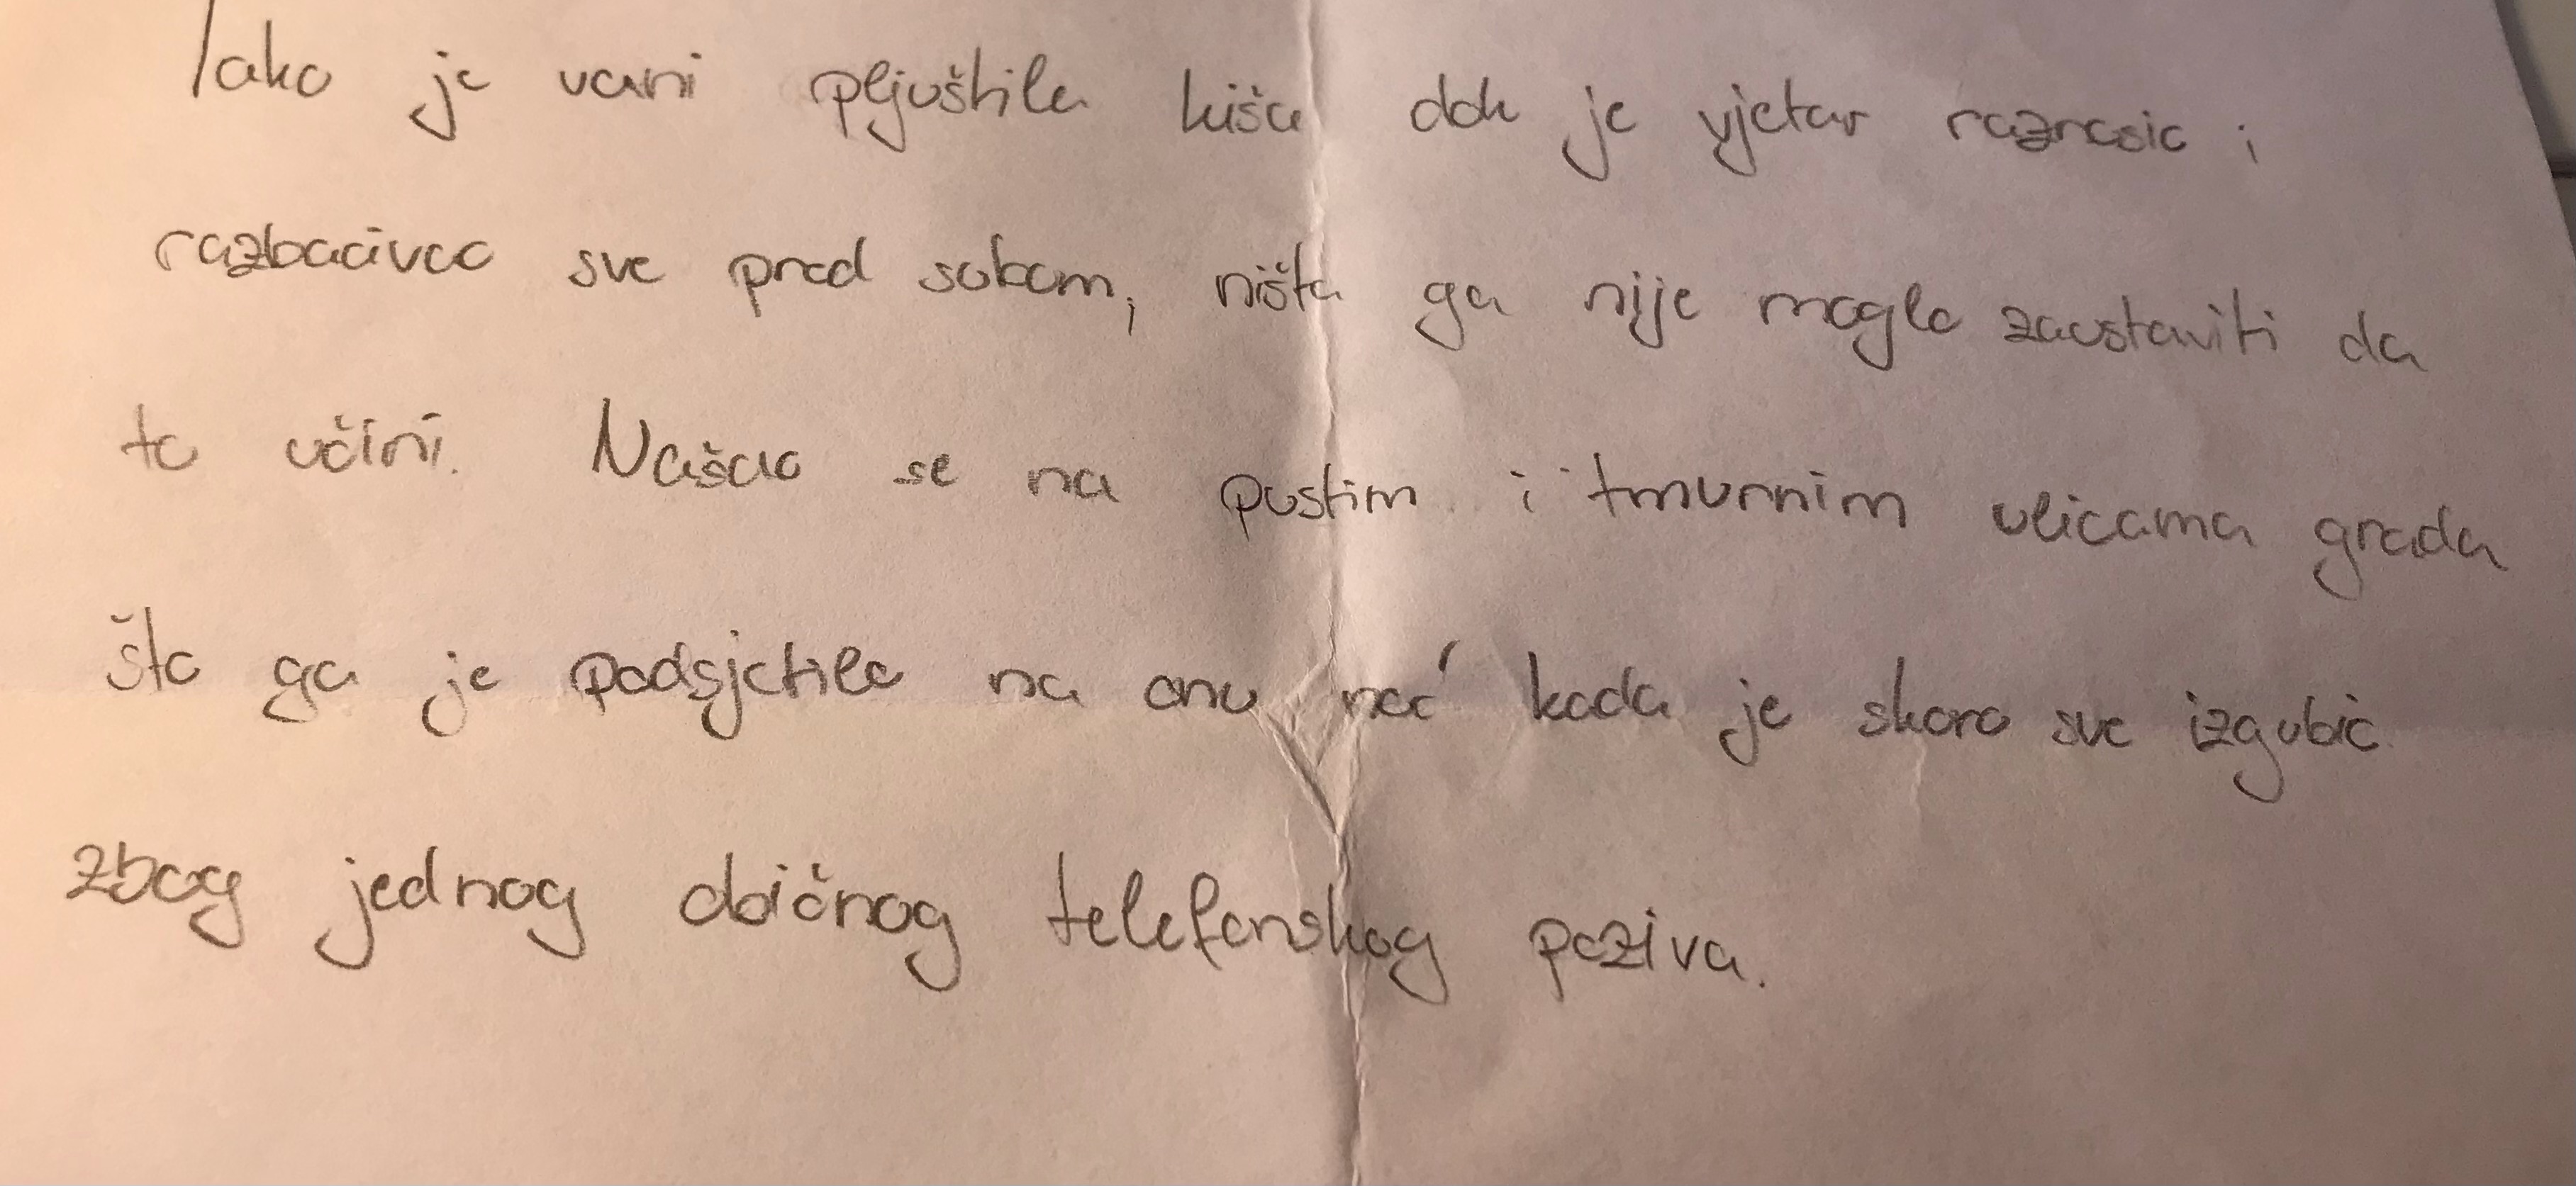 Iako je vani pljuštila kiša dok je vjetar raznosio i
razbacivao sve pred sobom, ništa ga nije moglo zaustaviti da
to učini. Našao se na pustim i tmurnim ulicama grada
što ga je podsjetilo na onu noć kada je skoro sve izgubio
zbog jednog običnog telefonskog poziva.